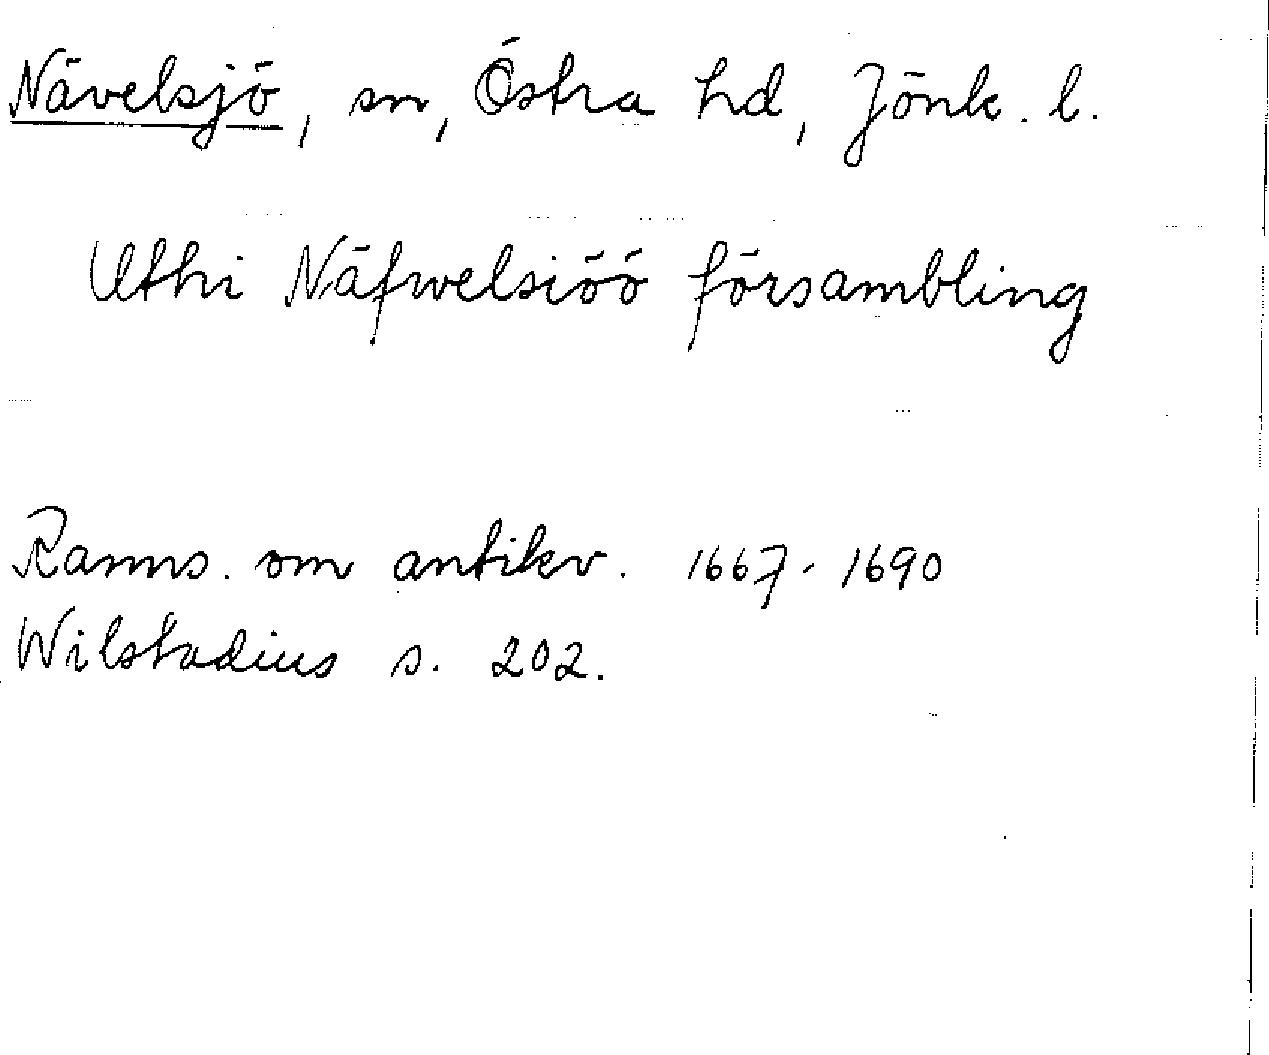 Nävelsjö, sn, Östra hd, Jönk. l.
Uthi Näfwelsiöö försambling
Ranns. om antikv. 1667-1690
Wilstadius s. 202.